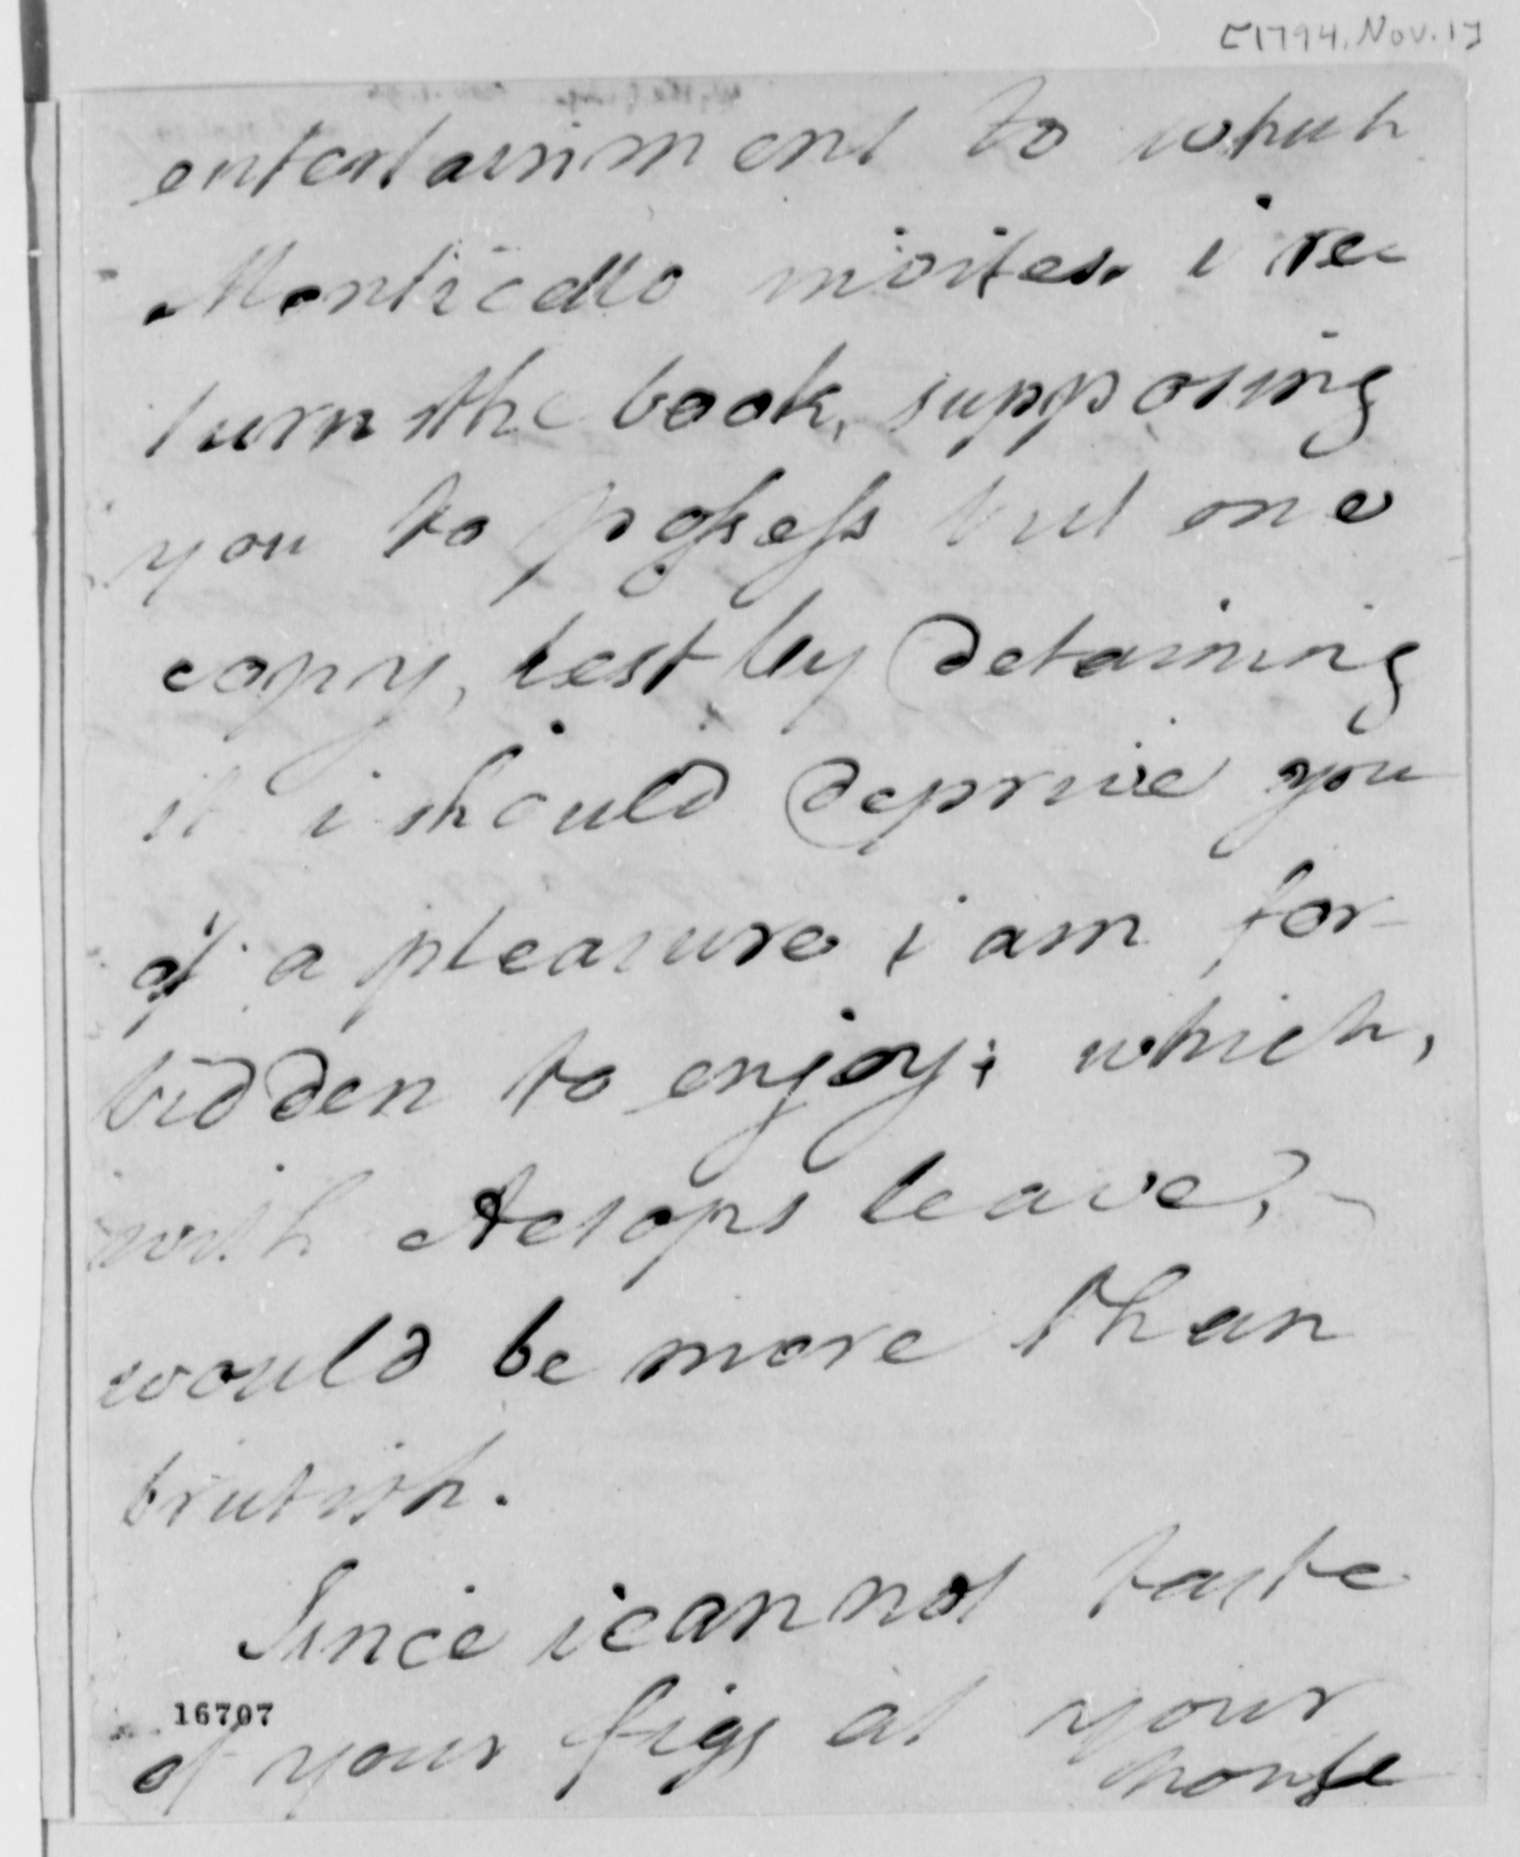 [1794. Nov. 1]
entertainment to which
Monticello invites. i re-
turn the book, supposing
you to possess but one
copy, lest by detaining
it i should deprive you
of a pleasure i am for-
bidden to enjoy; which,
with Aesops leave, -
would be more than
brutish.
Since i cannot taste
16707
of your figs at your
house